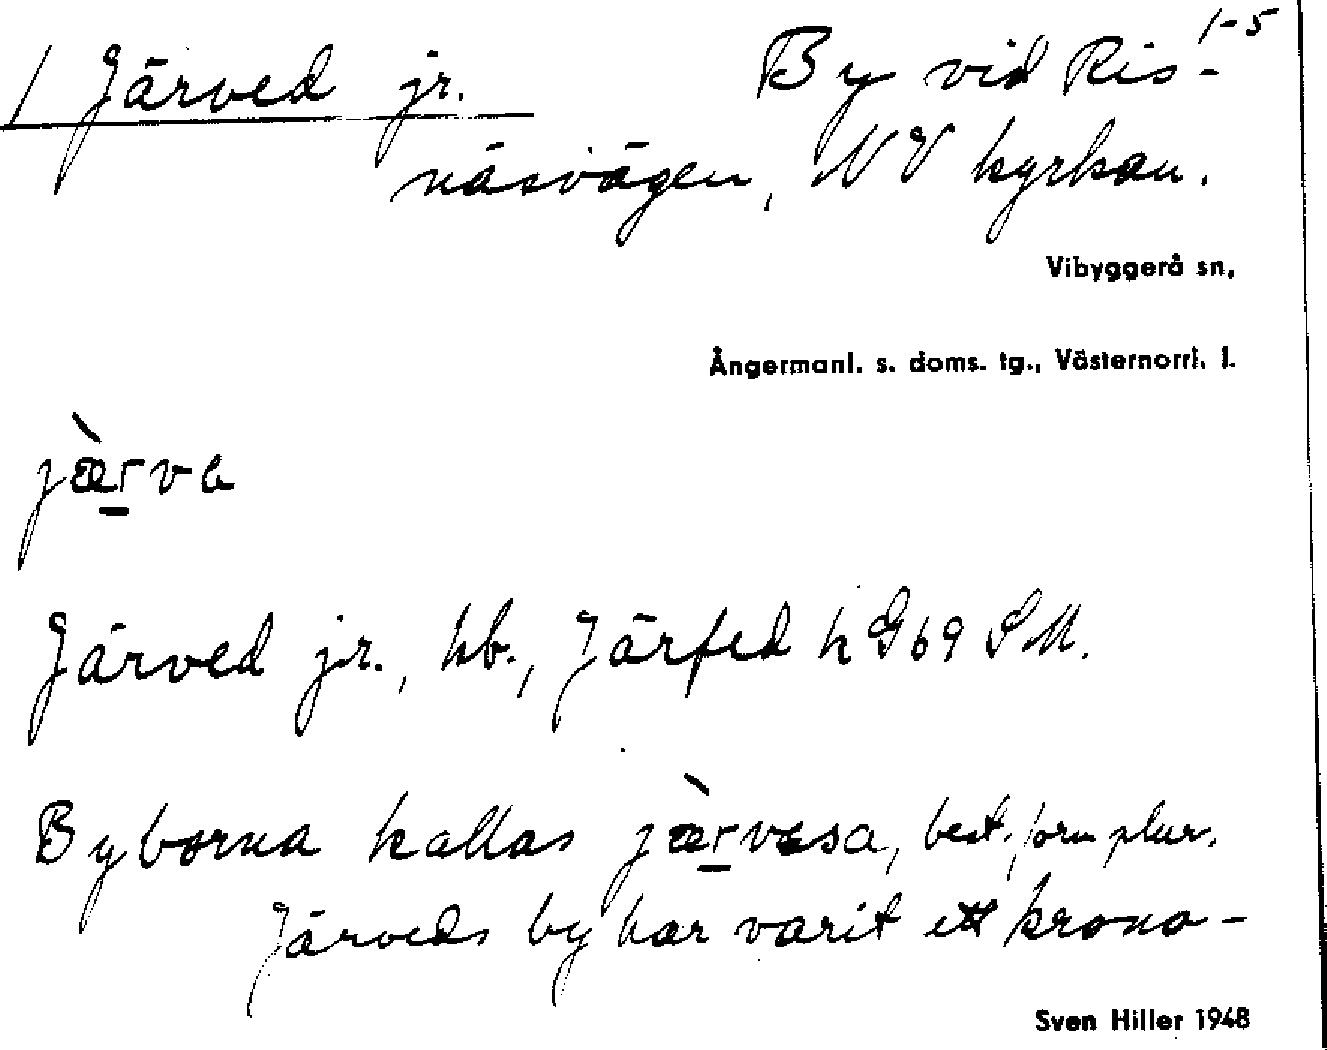 1-5
/ Järved jr. By vid Ris-
näsvägen, NV kyrkan.
Vibyggerå sn,
Ångermanl. s. doms. tg., Västernorrl. l.
jæ̀rva
Järved jr., hb., Järfed h G69 SM.
Byborna kallas jæ̀rvæsa, best. form plur.
Järveds by har varit ett krono-
Sven Hiller 1948